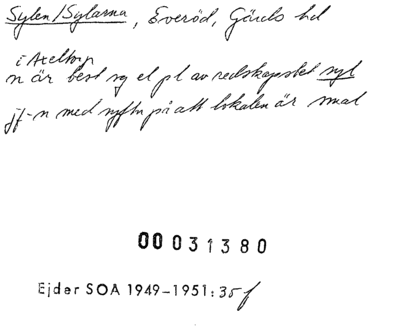 Sylen/Sylarna, Everöd, Gärds hd
i Axeltorp
n är best sg el pl av redskapsbet syl
jf-n med syftn på att lokalen är smal
00 031380
Ejder SOA 1949-1951:35f